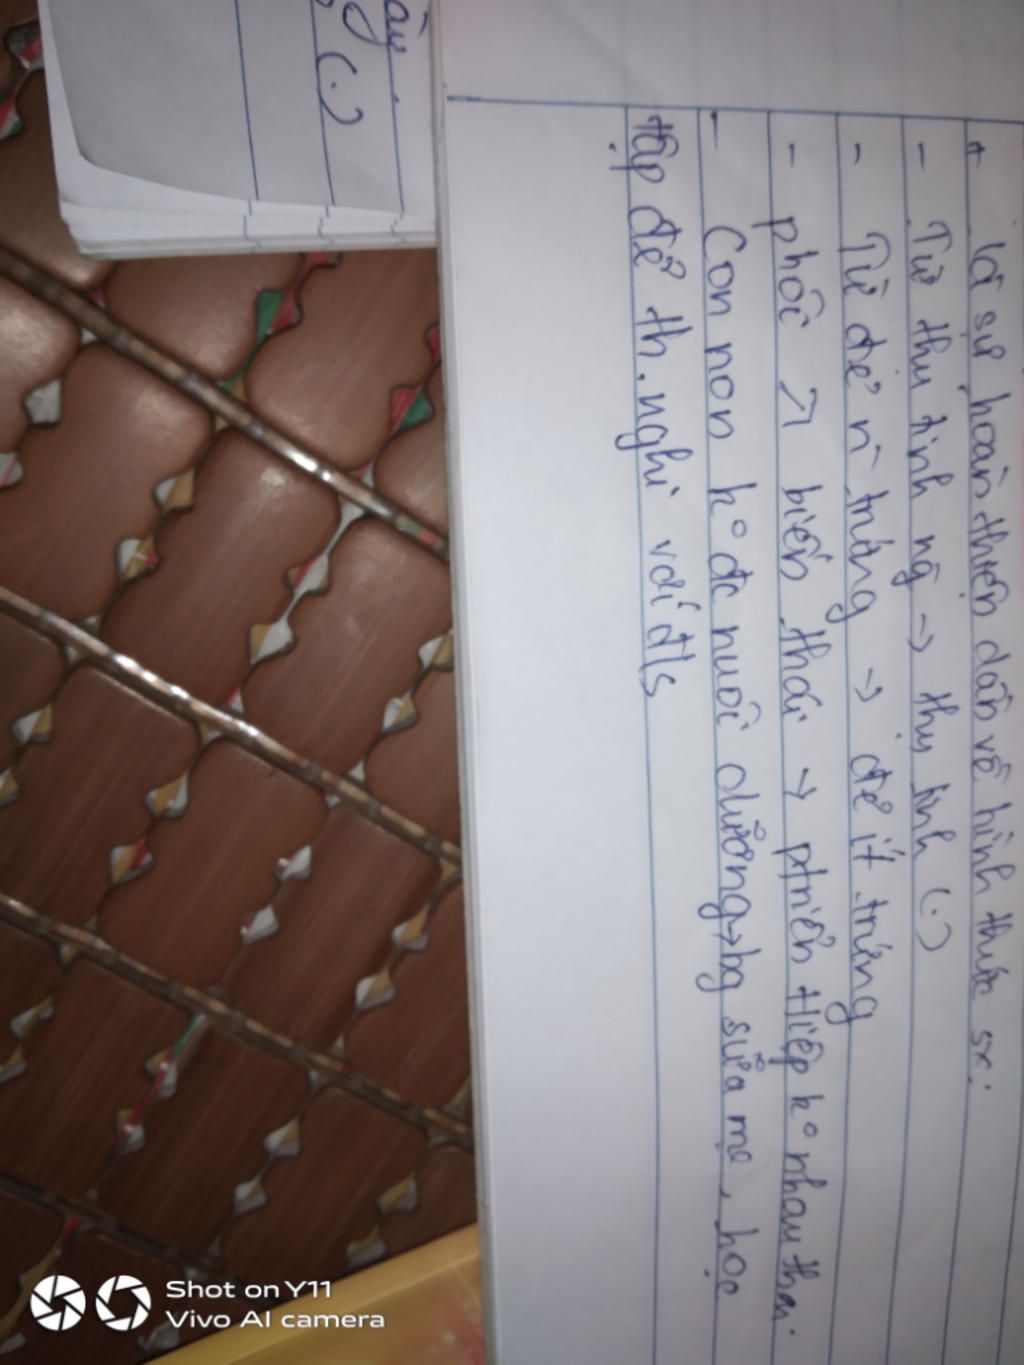 + là sự hoàn thiện dần về hình thức sx:
- Từ thụ tinh ng̃ → thụ tinh (.)
- Từ đẻ n̄ trứng → đẻ ít trứng
- phôi ↗ biến thái → ptriển tiếp ko nhau thai.
- Con non ko đc nuôi dưỡng→bg sữa mẹ, học
tập để th.nghi với đ/s
(.)
Shot on Y11
Vivo AI camera